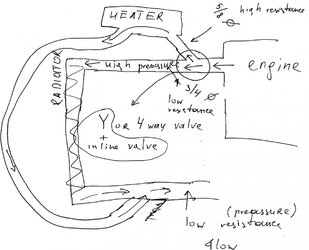 HEATER
5/8 ⌀ high resistance
high preapssure
engine
RADIATOR
3/4 ⌀
low
resistance
Y or 4 way valve
+
inline valve
(preapssure)
low resistance
flow